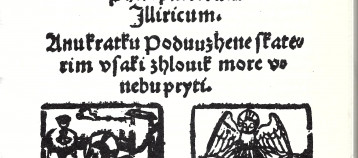 Illiricum.
Anu kratku Poduuzhene skate-
rim vsaki zhlouik more vo
nebu pryti.